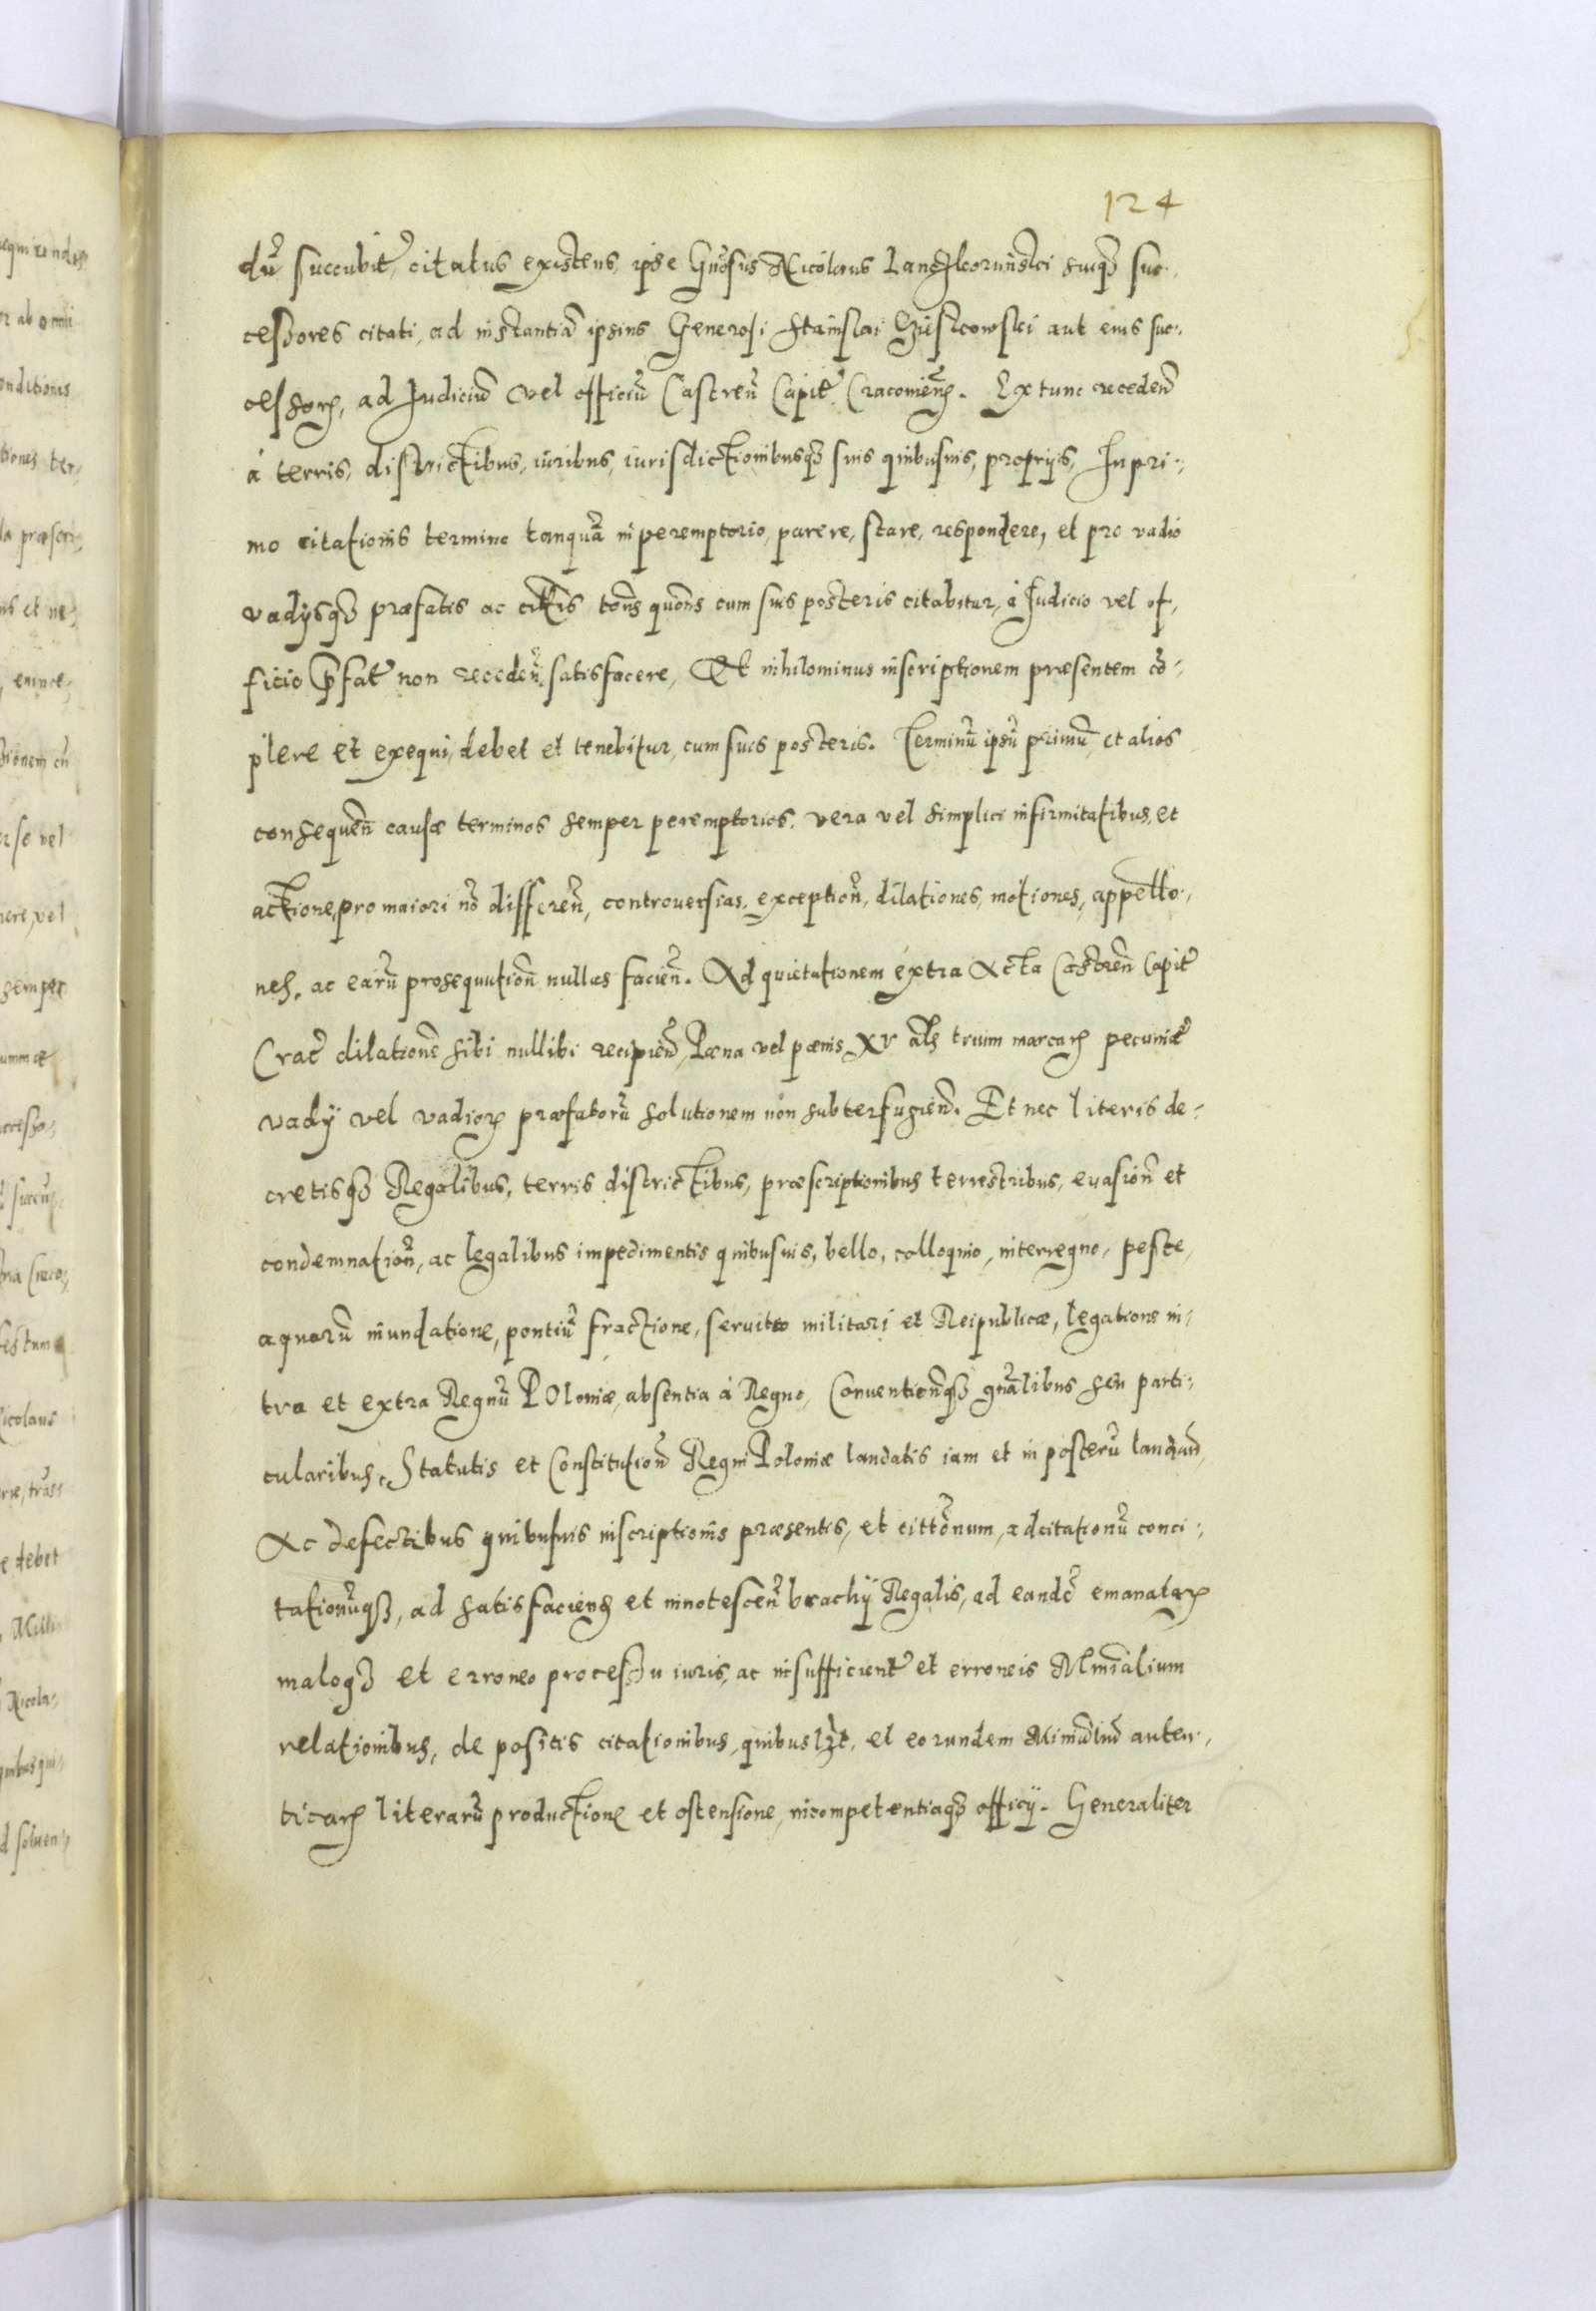 124
dũ succubit, citatus existens, ipse Gnosus Nicolaus Lanczkorunski suiqȝ suc-
cessores citati, ad instantiã ipsius Generosi Stanislai aut eius suc-
cessorũ, ad Judiciũ vel officiũ Castreñ Capit Cracovieñ. Ex tunc recedeñ
à terris, districtibus, iuribus, iurisdictionibusqȝ suis quibusuis, proprijs, In pri-
mo citationis termino tanquã in peremptorio, parere, stare, respondere, et pro vadio
vadijsqȝ præfatis ac toñs quoñs cum suis posteris citabitur, à Judicio vel of-
ficio p̃fat non recedeñ, satisfacere, Et nihilominus inscriptionem præsentem cõ-
plere et exequi, debet et tenebitur, cum suis posteris. Terminũ ipsũ primũ, et alios
consequeñ causæ terminos semper peremptorios, vera vel simplici infirmitatibus, et
actione, pro maiori nõ differeñ, controuersias, exceptioñ, dilationes, motiones, appellõ-
nes, ac earũ prosequutioñ nullas facieñ. Ad quietationem extra Acta Castreñ Capit
Crac dilationẽ sibi nullibi recipieñ, Pæna vel pænis XV als trium marcarũ pecuniæ
vadij vel vadiorũ præfatorũ solutionem non subterfugieñ. Et nec literis de-
cretisqȝ Regalibus, terris districtibus, præscriptionibus terrestribus, euasioñ et
condemnatioñ, ac legalibus impedimentis quibusuis, bello, colloquio, interregno, peste,
aquarũ inundatione, pontiũ fractione, seruitio militari et Reipublicæ, legatione in-
tra et extra Regnũ Poloniæ, absentia à Regno, Conuentioñqȝ gnalibus seu parti-
cularibus, Statutis et Constitutioñ Regni Poloniæ laudatis iam et in posterũ laudañ,
Ac defectibus quibusuis inscriptionis præsentis, et cittõnum, adcitationũ conci-
tationũqȝ, ad satisfacieñ et innotesceñ brachij Regalis, ad eandẽ emanatarũ
maloqȝ et erroneo processu iuris, ac insufficient et erroneis Mlmialium
relationibus, de positis citationibus, quibuslt, et eorundem Miniãliũ auten-
ticarũ literarũ productione et ostensione, incompetentiaqȝ officij. Generaliter